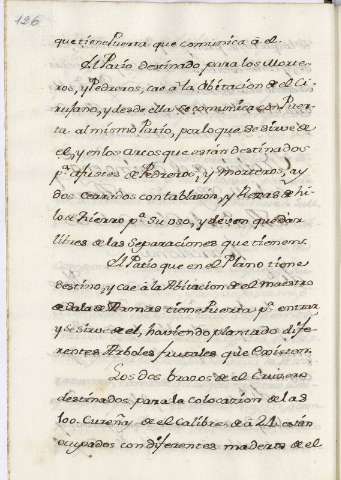 126
que tiene Puerta que comunica à el.
El Patio destinado para los Morte-
ros, y Pedreros, cae à la Abitacion de el Ci-
rujano, y desde ella se comunica con Puer-
ta al mismo Patio, por lo que se sirve de
el, y en los Arcos que están destinados
pª afustes de Pedreros, y Morteros, ay
dos cerrados con tablazon, y Rexas de hi-
lo de hierro pª su uso, y deven quedar
libres de las separaciones que tienen.
El Patio que en el Plano tiene
destino, y cae à la Abitacion de el Maestro
de Sala de Armas tiene Puerta pª entrar
y se sirve de el, haviendo plantado dife-
rentes Arboles frutales que existen.
Los dos brazos de el Cruzero
destinados para la colocazion de las
100. Cureñas de el Calibre de à 24. están
ocupados con diferentes maderas de el